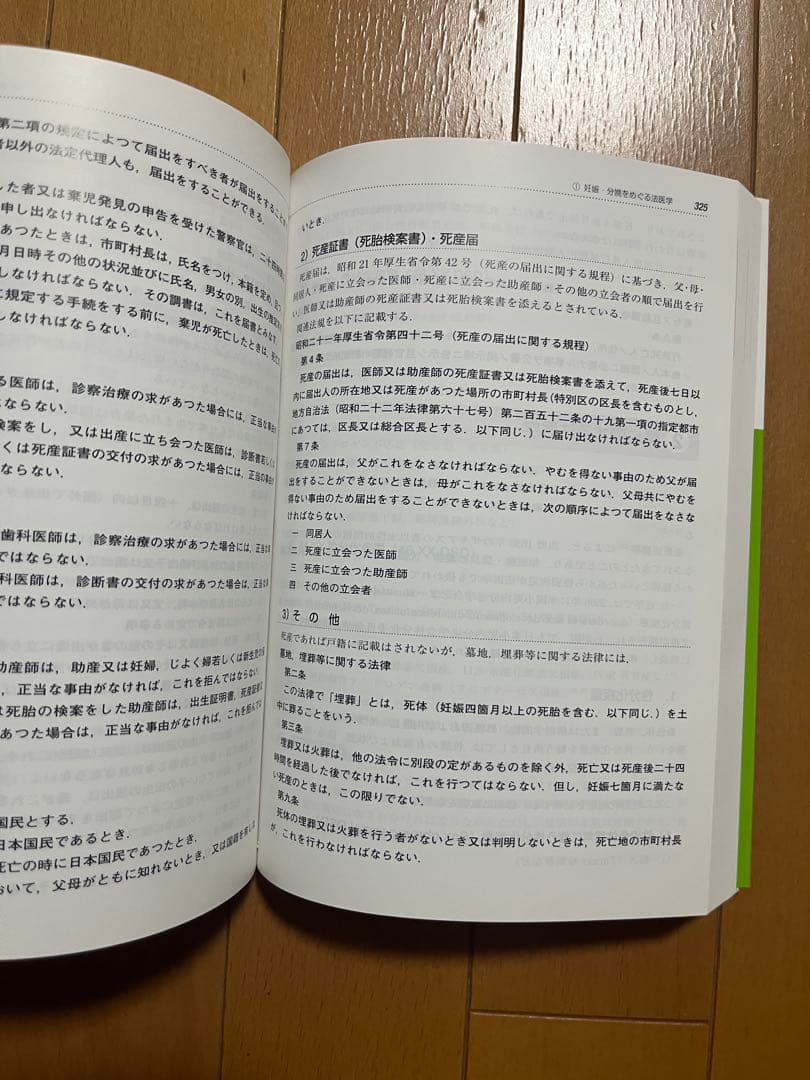 第二項の規定によつて届出をすべき者が届出をすることが
者以外の法定代理人も，届出をすることができる．
した者又は棄児発見の申告を受けた警察官は，二十四時間
申し出なければならない．
あつたときは，市町村長は，氏名をつけ，本籍を定め，
月日時その他の状況並びに氏名，男女の別，出生の推定
しなければならない．その調書は，これを届書とみなす．
に規定する手続をする前に，棄児が死亡したときは，死亡
しなければならない．
る医師は，診察治療の求があつた場合には，正当な事由が
はならない．
検案をし，又は出産に立ち会つた医師は，診断書若しくは
くは死産証書の交付の求があつた場合には，正当の事由が
ならない．
歯科医師は，診察治療の求があつた場合には，正当な事
ではならない．
科医師は，診断書の交付の求があつた場合は，正当な事
ではならない．
助産師は，助産又は妊婦，じよく婦若しくは新生児の
，正当な事由がなければ，これを拒んではならない．
は死胎の検案をした助産師は，出生証明書，死産証書
あつた場合は，正当な事由がなければ，これを拒んでは
国民とする．
日本国民であるとき．
死亡の時に日本国民であつたとき．
おいて，父母がともに知れないとき，又は国籍を有し
① 妊娠・分娩をめぐる法医学 325
いとき．
2) 死産証書（死胎検案書）・死産届
死産届は，昭和 21 年厚生省令第 42 号（死産の届出に関する規程）に基づき，父・母・
同居人・死産に立会った医師・死産に立会った助産師・その他の立会者の順で届出を行
い，医師又は助産師の死産証書又は死胎検案書を添えるとされている．
関連法規を以下に記載する．
昭和二十一年厚生省令第四十二号（死産の届出に関する規程）
第４条
死産の届出は，医師又は助産師の死産証書又は死胎検案書を添えて，死産後七日以
内に届出人の所在地又は死産があつた場所の市町村長（特別区の区長を含むものとし，
地方自治法（昭和二十二年法律第六十七号）第二百五十二条の十九第一項の指定都市
にあつては，区長又は総合区長とする．以下同じ．）に届け出なければならない．
第７条
死産の届出は，父がこれをなさなければならない．やむを得ない事由のため父が届
出をすることができないときは，母がこれをなさなければならない．父母共にやむを
得ない事由のため届出をすることができないときは，次の順序によつて届出をなさな
ければならない．
一 同居人
二 死産に立会つた医師
三 死産に立会つた助産師
四 その他の立会者
3) そ の 他
死産であれば戸籍に記載はされないが，墓地，埋葬等に関する法律には，
墓地，埋葬等に関する法律
第二条
この法律で「埋葬」とは，死体（妊娠四箇月以上の死胎を含む．以下同じ．）を土
中に葬ることをいう．
第三条
埋葬又は火葬は，他の法令に別段の定があるものを除く外，死亡又は死産後二十四
時間を経過した後でなければ，これを行つてはならない．但し，妊娠七箇月に満たな
い死産のときは，この限りでない．
第九条
死体の埋葬又は火葬を行う者がないとき又は判明しないときは，死亡地の市町村長
が，これを行わなければならない．